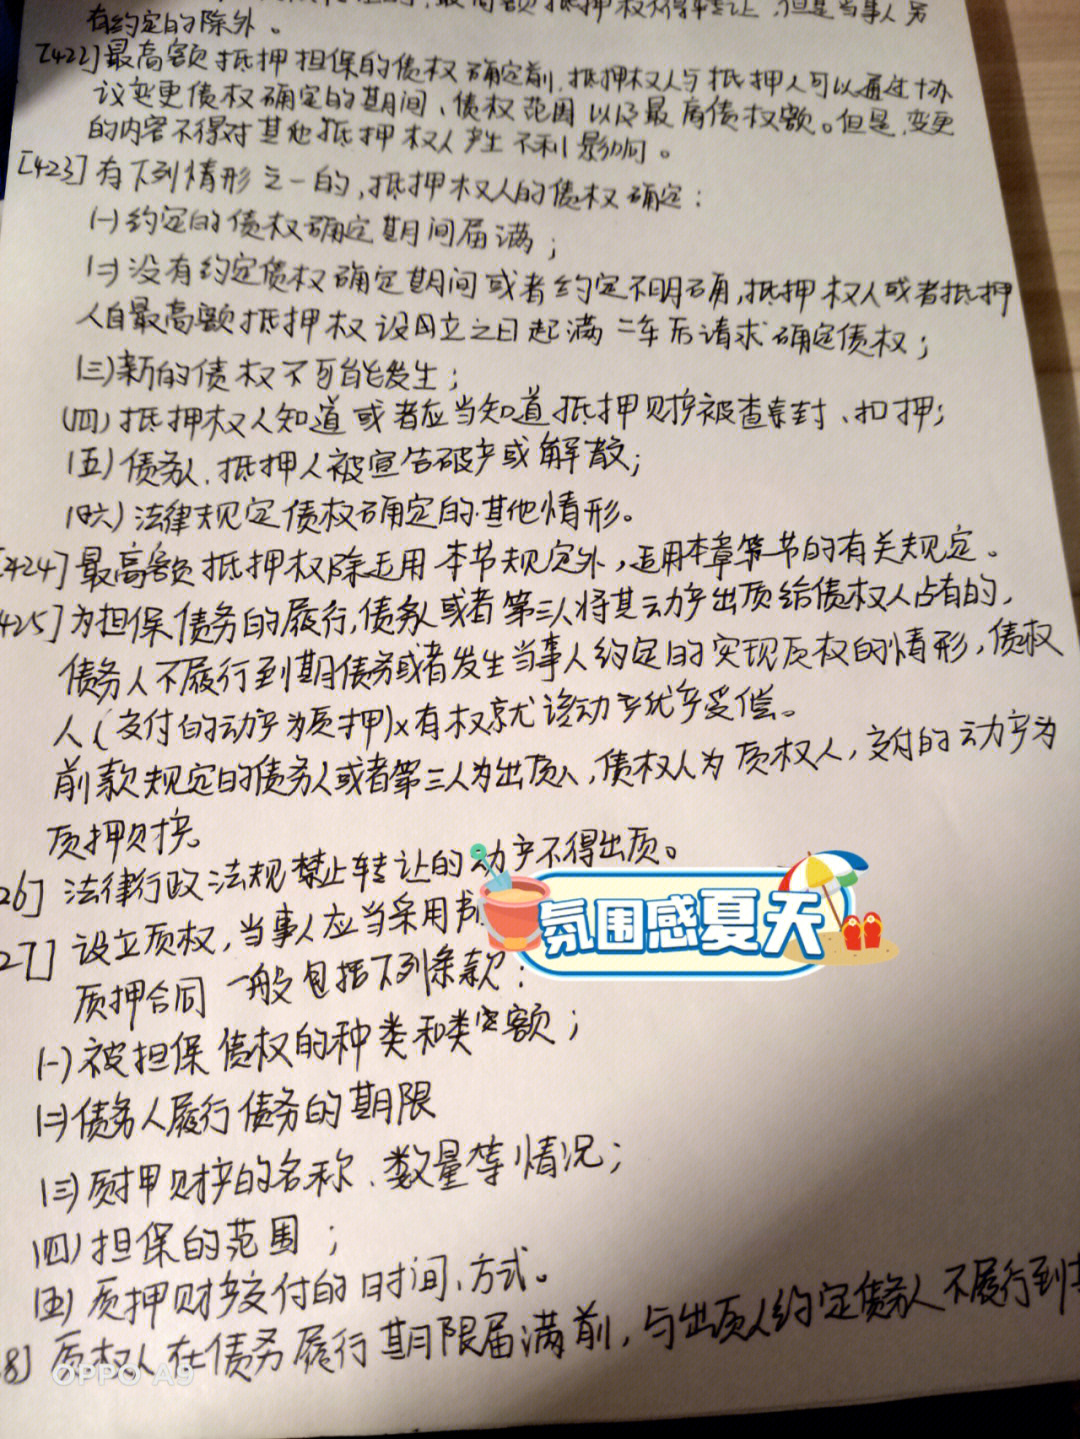 最高额抵押权不得转让，但是当事人另
有约定的除外。
[422]最高额抵押担保的债权确定前，抵押权人与抵押人可以通过协
议变更债权确定的期间、债权范围以及最高债权额。但是，变更
的内容不得对其他抵押权人产生不利影响。
[423]有下列情形之一的，抵押权人的债权确定：
(一)约定的债权确定期间届满；
(二)没有约定债权确定期间或者约定不明确，抵押权人或者抵押
人自最高额抵押权设立之日起满二年后请求确定债权；
(三)新的债权不可能发生；
(四)抵押权人知道或者应当知道抵押财产被查封、扣押；
(五)债务人、抵押人被宣告破产或解散；
(六)法律规定债权确定的其他情形。
424]最高额抵押权除适用本节规定外，适用本章第一节的有关规定。
425]为担保债务的履行，债务人或者第三人将其动产出质给债权人占有的，
债务人不履行到期债务或者发生当事人约定的实现质权的情形，债权
人(交付的动产为质押)x有权就该动产优产受偿。
前款规定的债务人或者第三人为出质人，债权人为质权人，交付的动产为
质押财产。
26]法律行政法规禁止转让的动产不得出质。
27]设立质权，当事人应当采用书
氛围感夏天
质押合同一般包括下列条款：
(一)被担保债权的种类和类额；
(二)债务人履行债务的期限
(三)质押财产的名称、数量等情况；
(四)担保的范围；
(五)质押财产交付的时间、方式。
8]质权人在债务履行期限届满前，与出质人约定债务人不履行到
OPPO A9